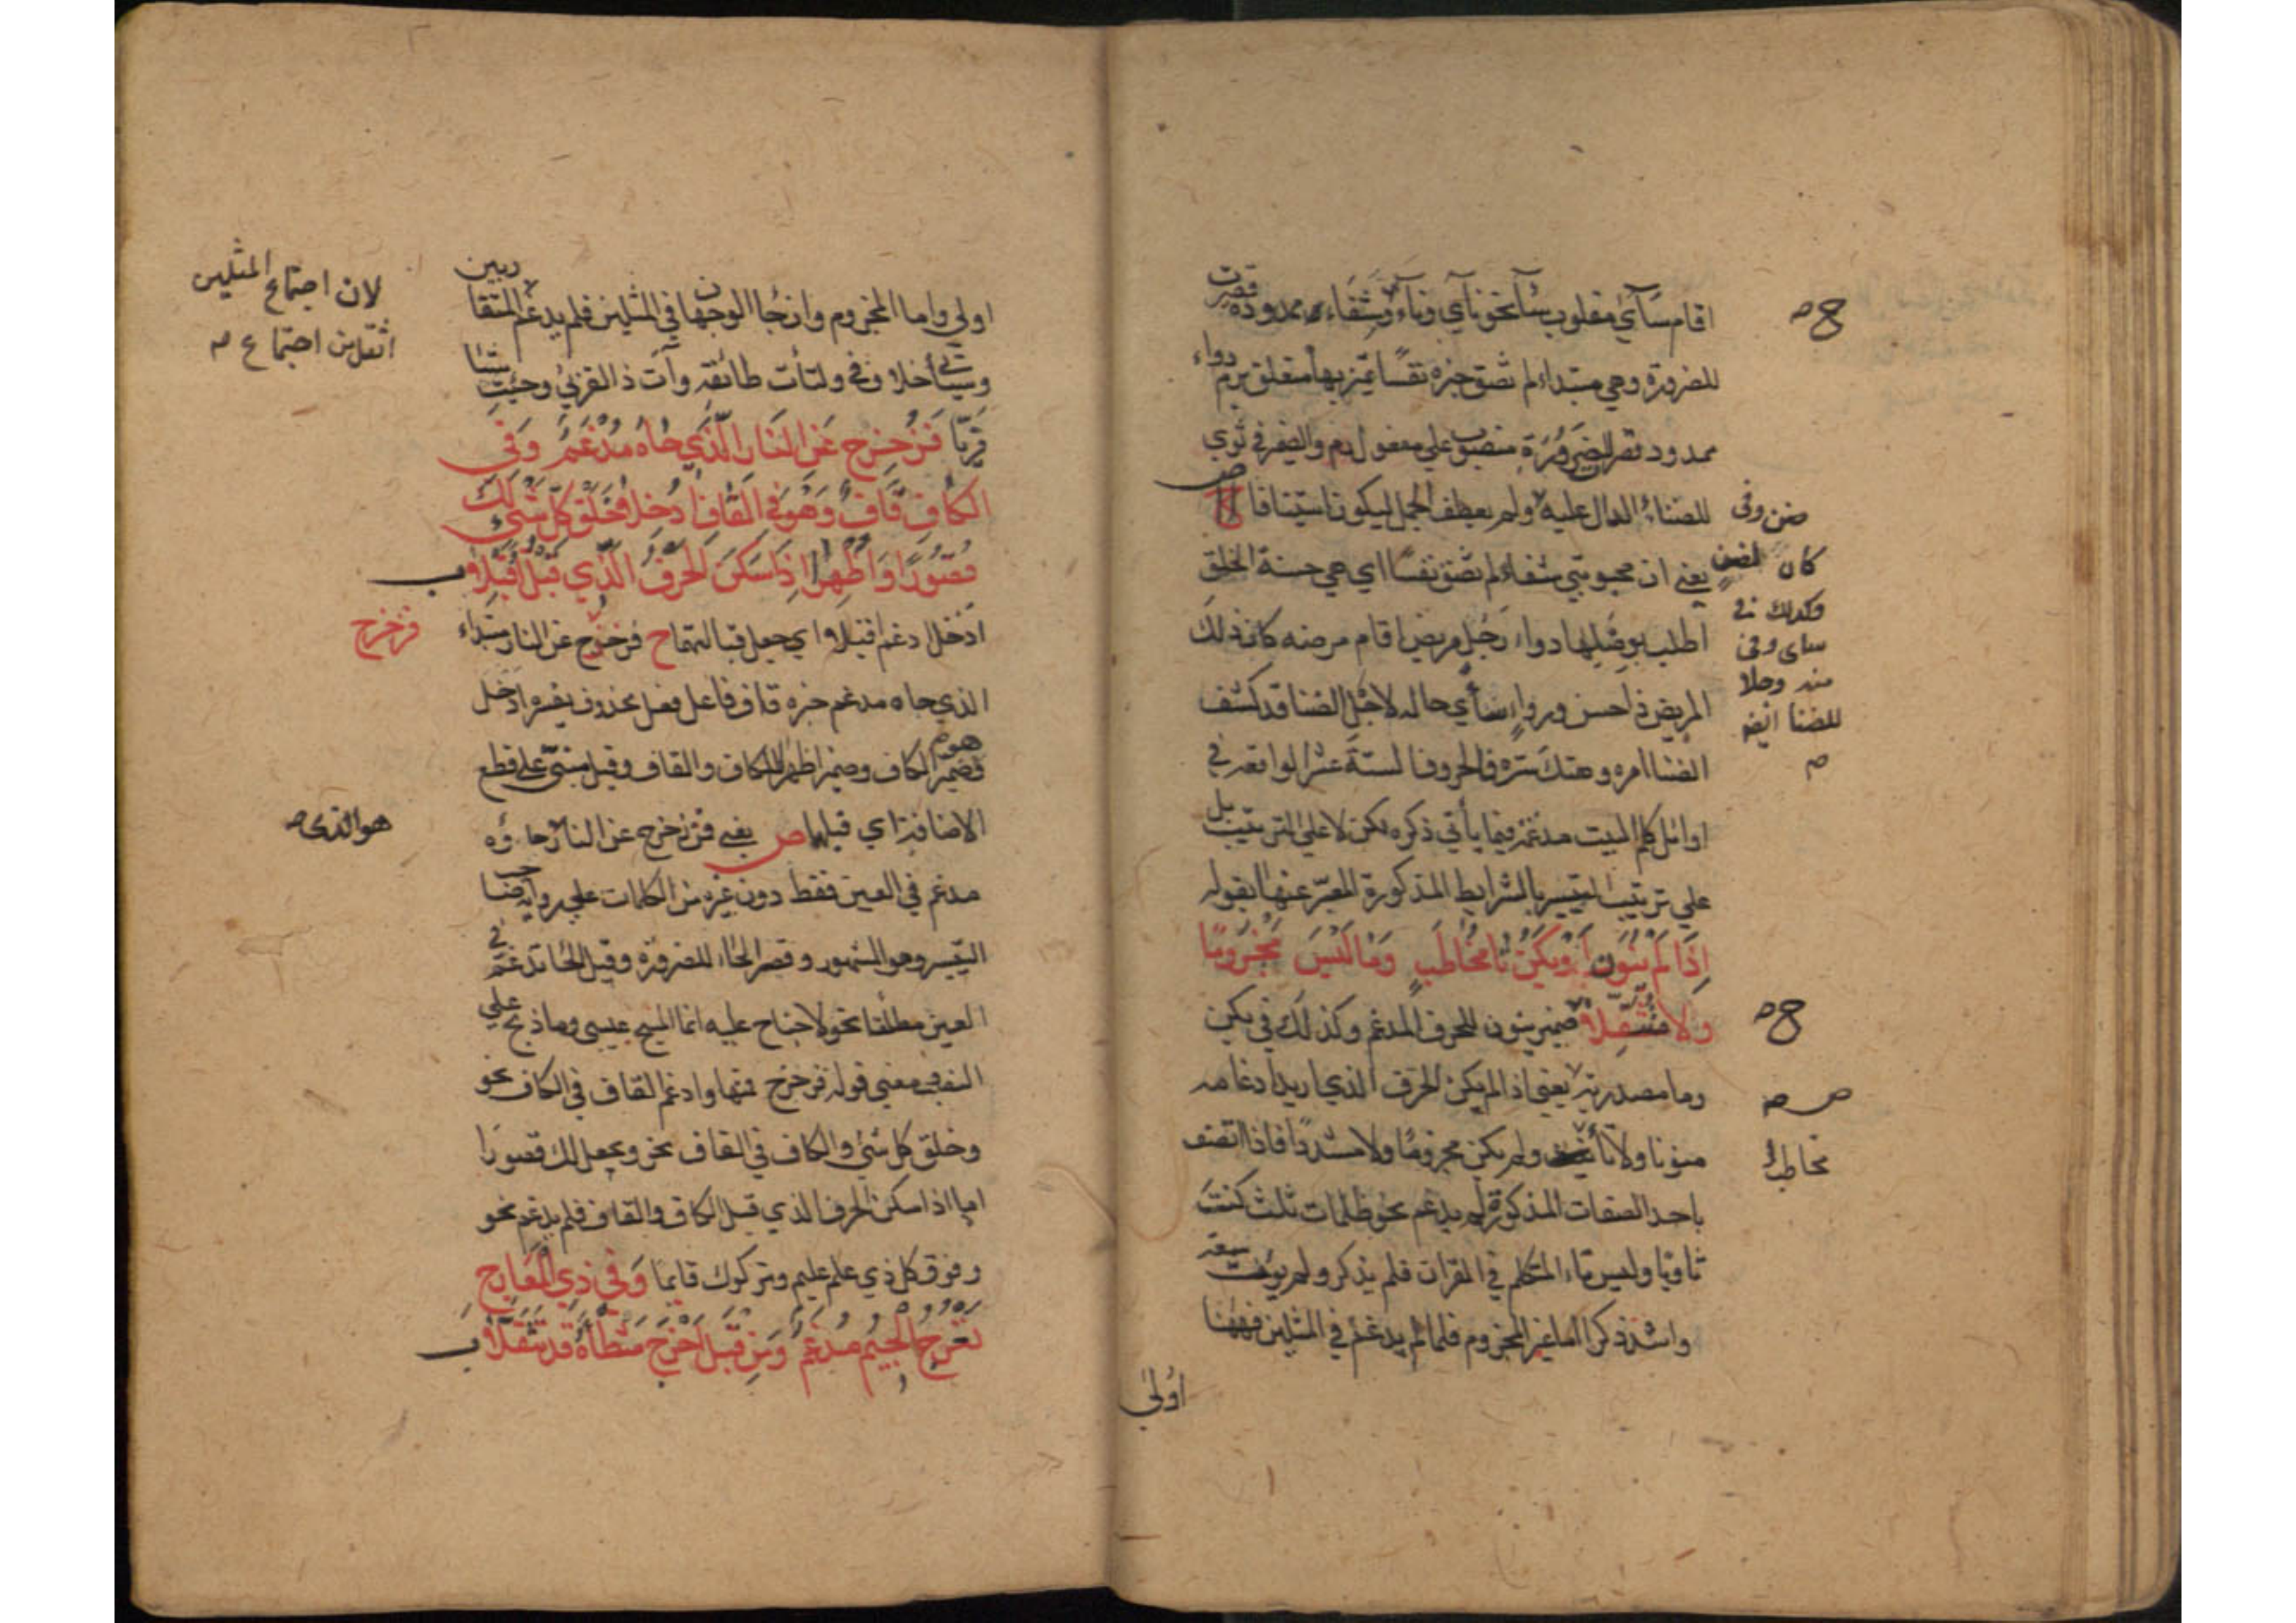 اقام سأي مقلوب سآ نحو نآي وناء وشفاء ممدودة قصرت
للضرورة وهي مبتداء لم تضق خبره نفسا تميز بها متعلق برم دواء
ممدود قصر للضرورة منصوب علي مفعول رم والضمير في ثوي
للضناء الدال عليه ولم يعطف الجمل ليكون استينافا
يعني ان محبوبتي شفاء لم تضق نفسا اي هي حسنة الخلق
اطلب بوصلها دواء رجل مريض اقام مرضه كان ذلك
المريض ذا حسن ورواء سأي حاله لاجل الضنا قد كشف
الضنا امره وهتك ستره فالحروف الستة عشر الواقعة في
اوائل كلم البيت مدغمة فيما يأتي ذكره لكن لا علي الترتيب بل
علي ترتيب التيسير بالشرايط المذكورة المعبر عنها بقوله
اِذَا لَمْ يُنَوَّنْ اَوْ يَكُنْ تَا مُخَاطَبٍ وَمَا لَيْسَ مَجْزُومًا
وَلَا مُتَثَقِّلَا ضمير ينون للحرف المدغم وكذلك في يكن
وما مصدرية يعني اذا لم يكن الحرف الذي اريد ادغامه
منونا ولا تا ولم يكن مجزوما ولا مشددا فاذا اتصف
باحد الصفات المذكورة لم يدغم نحو ظلمات ثلث كنت
ثاويا وليس تاء المتكلم في القران فلم يذكر ولم يؤت سعة
واشد ذكرا اما غير المجزوم فلما لم يدغم في المثلين فههنا
اولي
ح صح
ضنن وفي
كان
وكذلك في
ساي وفي
منه وحلا
للضنا ايضا
ح صح
مخاطب
اولي واما المجزوم وان جا الوجهان في المثلين فلم يدغم المتقاربين
وحيث شيئا
فَرِيًّا فَزُحْزِحَ عَنِ النَّارِ الَّذِي حَاهُ مُدْغَمٌ وَفِي
الْكَافِ قَافٌ وَهُوَ فِي الْقَافِ اُدْخِلَا خَلَقَ كُلَّ شَيْءٍ لَكَ
قُصُورًا وَاَظْهِرَا اِذَا سَكَنَ الْحَرْفُ الَّذِي قَبْلُ اُقْبِلَا
ادخل ادغم اقبلا اي جعل قبالتهما ح فزحزح عن النار مبتداء
الذي حاه مدغم خبره قاف فاعل فعل محذوف يفسره ادخل
فضمير هو للكاف وضمير اظهرا للكاف والقاف وقبل مبني علي قطع
الاضافة اي قبلهما ص يعني فزحزح عن النار حاوه
مدغم في العين فقط دون غيره من الكلمات علي
التيسير وهو المشهور وقصر الحاء للضرورة وقيل الحا تدغم في
العين مطلقا نحو لا جناح عليه انما المسيح عيسى وما ذبح علي
النصب فمعني قوله فزحزح فمنها وادغم القاف في الكاف نحو
وخلق كل شي والكاف في القاف نحو ويجعل لك قصورا
اما اذا سكن الحرف الذي قبل الكاف والقاف فلم يدغم نحو
وفوق كل ذي علم عليم وتركوك قايما وَفِي ذِي الْمَعَارِجِ
تَعْرُجُ الْجِيمُ مُدْغَمٌ وَمِنْ قَبْلُ اَخْرَجَ شَطْأَهُ قَدْ تَثَقَّلَا
لان اجتماع المثلين
اثقل من اجتماع صح
فزحزح
هو الذي صح